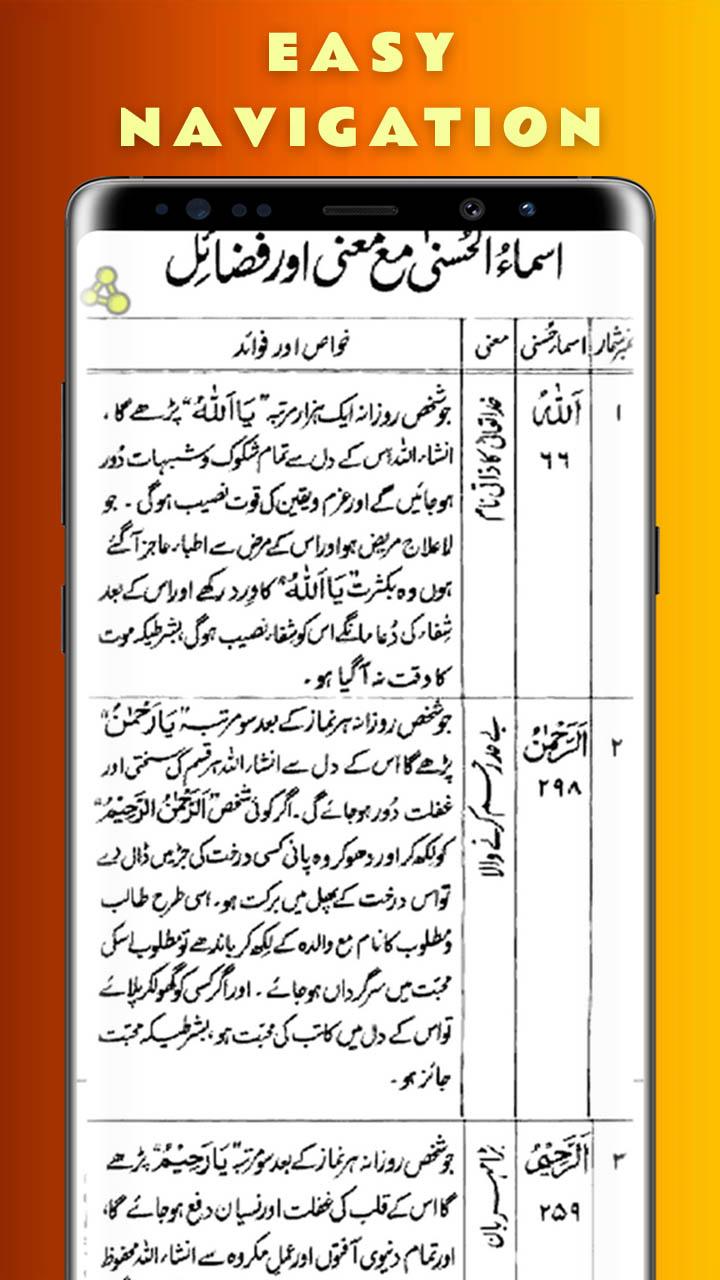 EASY
NAVIGATION
اسماءُ الحُسنیٰ مع معنی اور فضائل
نمبرشمار اسماءحُسنیٰ معنی خواص اور فوائد
۱
اَللّٰهُ
۶۶
خداتعالیٰ کا ذاتی نام
جو شخص روزانہ ایک ہزار مرتبہ "یَا اَللّٰهُ" پڑھے گا،
انشاء اللہ اس کے دل سے تمام شکوک و شبہات دُور
ہوجائیں گے اور عزم ویقین کی قوت نصیب ہوگی۔ جو
لاعلاج مریض ہو اور اس کے مرض سے اطباء عاجز آگئے
ہوں وہ بکثرت "یَا اَللّٰهُ" کا وِرد رکھے اور اس کے بعد
شِفاء کی دُعا مانگے اس کو شفاء نصیب ہوگی، بشرطیکہ موت
کا وقت نہ آگیا ہو۔
۲
اَلرَّحْمٰنُ
۲۹۸
بے حد رحم کرنے والا
جو شخص روزانہ ہر نماز کے بعد سو مرتبہ "یَا رَحْمٰنُ"
پڑھے گا اس کے دل سے انشاء اللہ ہر قسم کی سختی اور
غفلت دُور ہوجائے گی۔ اگر کوئی شخص "اَلرَّحْمٰنُ الرَّحِیْمُ"
کو لکھ کر اور دھو کر وہ پانی کسی درخت کی جڑ میں ڈال دے
تو اس درخت کے پھل میں برکت ہو۔ اسی طرح طالب
و مطلوب کا نام مع والدہ کے لکھ کر باندھے تو مطلوب اسکی
محبّت میں سرگرداں ہوجائے۔ اور اگر کسی کو گھول کر پلائے
تو اس کے دل میں کاتب کی محبّت ہو، بشرطیکہ محبّت
جائز ہو۔
۳
اَلرَّحِیْمُ
۲۵۹
بڑا مہربان
جو شخص روزانہ ہر نماز کے بعد سو مرتبہ "یَا رَحِیْمُ" پڑھے
گا اس کے قلب کی غفلت اور نسیان دفع ہوجائے گا،
اور تمام دنیوی آفتوں اور عملِ مکروہ سے انشاء اللہ محفوظ